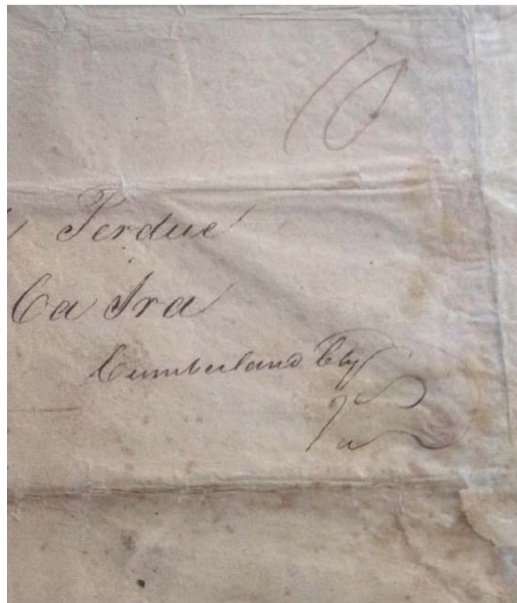 10
Perdue
Ca Ira
Cumberland Cty
Va